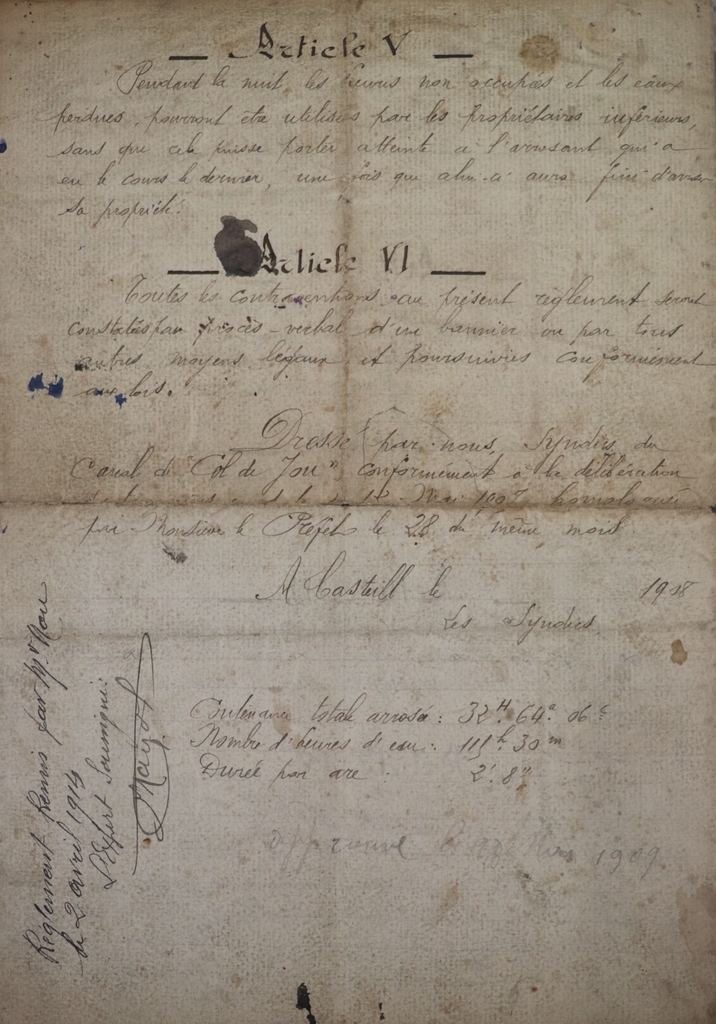 Article V
Pendant la nuit, les heures non occupées et les eaux
perdues, pourront être utilisées par les Propriétaires inférieurs,
sans que cela puisse porter atteinte à l'arrosant qui a
eu le cours le dernier, une fois que celui-ci aura fini d'arroser
sa propriété.
Article VI
Toutes les contraventions au présent règlement seront
constatées par procès-verbal d'un bannier ou par tous
autres moyens légaux et poursuivies conformément
aux lois.
Dressé par nous, Syndics du
Canal de "Col de Jou" conformément à la délibération
Mai 1907 homologuée
par Monsieur le Préfet le 28 du même mois.
A Casteill le 1908
Les Syndics,
Contenance totale arrosée: 32H. 64a. 06c
Nombre d'heures d'eau: 111h. 30m
Durée par are: 2'. 8"
approuvé 1909
Règlement Remis par Mr Nou
le 2 avril 1914
L'Expert Soussigné: